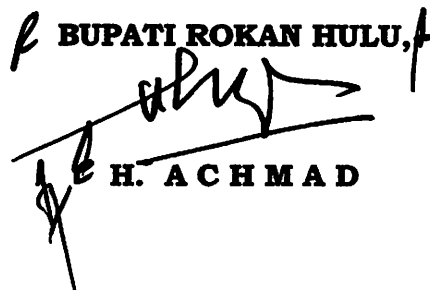 BUPATI ROKAN HULU,
H. A C H M A D